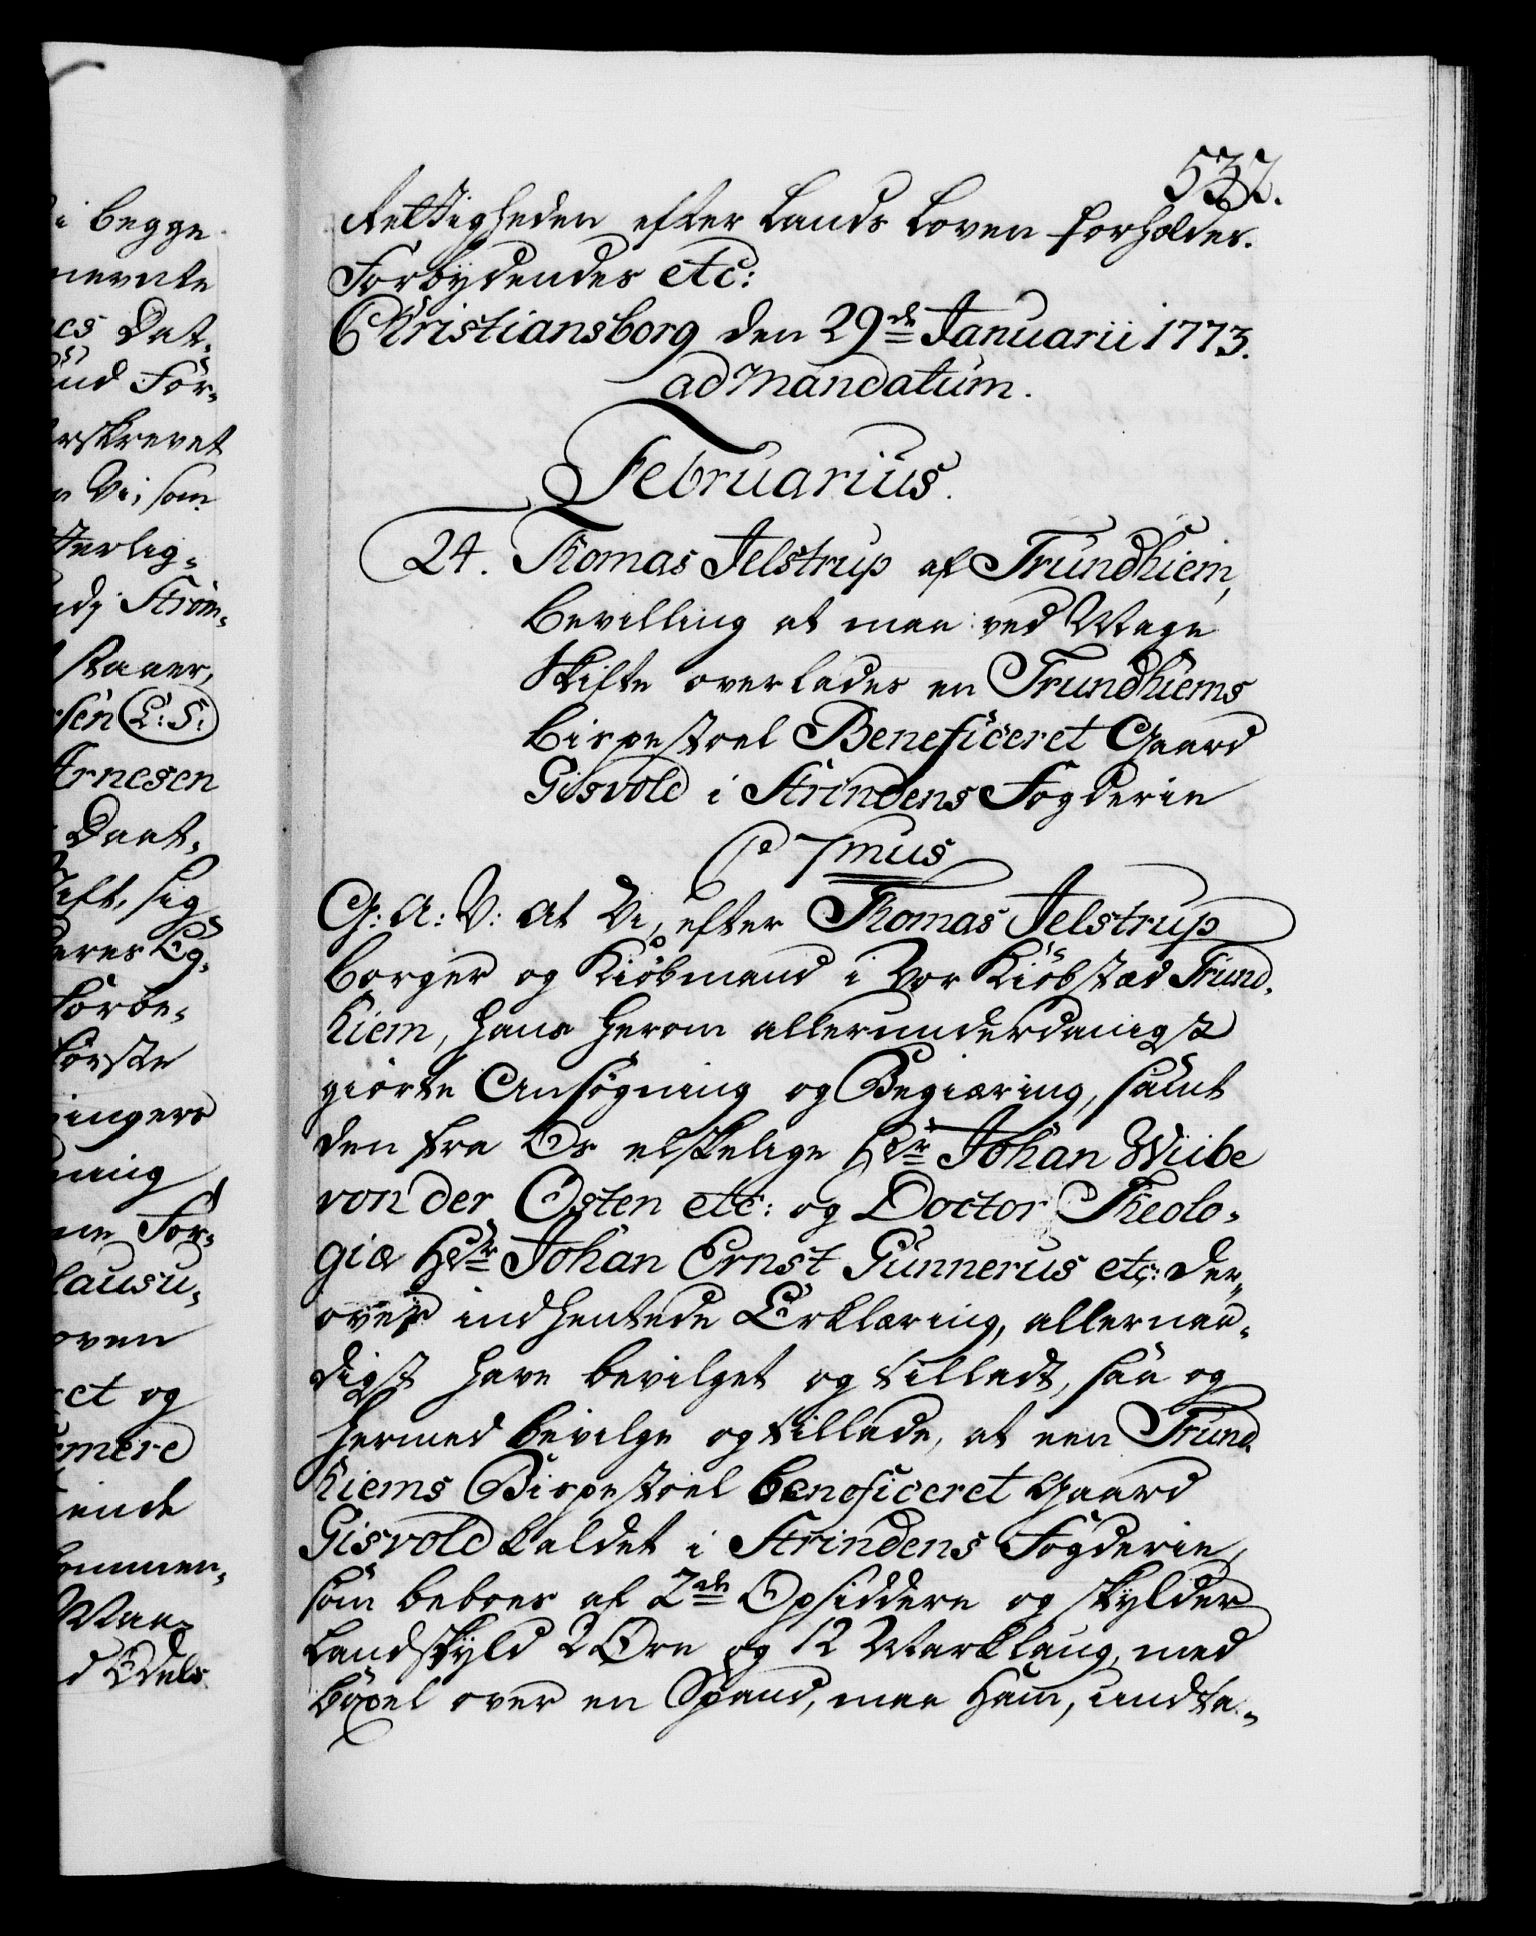 i begge
nevnte
es Dat-
und For-
rskrevet
Vi, som
tterlig-
Strøm-
staaer,
sen L: S:
Arnesen
Daat-
sig
eres Eg-
forbe-
første
ingers
ning
ne For-
lausu-
oven
et og
mere
ende
kommer-
Maa-
d Odels
532.
Rettigheden efter Lands Loven forholdes.
Forbydendes etc:
Christiansborg den 29de Januarii 1773.
ad Mandatum.
Februarius.
24. Thomas Jelstrup af Trundhiem,
Bevilling at maa ved Mage
Skifte overlades en Trundhiems
Bispestoel Beneficeret Gaard
Gisvold i Strindens Fogderie
C 7mus
G: A: V: at Vi, efter Thomas Jelstrup
Borger og Kiøbmand i Vor Kiøbstæd Trund-
hiem, hans herom allerunderdanigst
giorte Ansøgning og Begiæring, samt
den fra Os elskelige Hr Johan Wiibe
von der Osten etc: og Doctor Theolo-
giæ Hr Johan Ernst Gunnerus etc: der-
over indhentede Erklæring, allernaa-
digst have bevilget og tilladt, saa og
hermed bevilge og tillade, at een Trund-
hiems Bispestoel beneficeret Gaard
Gisvold kaldet i Strindens Fogderie,
som beboes af 2de Opsiddere og skylder
Landskyld 2 Øre og 12 Marklaug, med
Bøxel over en Spand, maa Ham, undta-